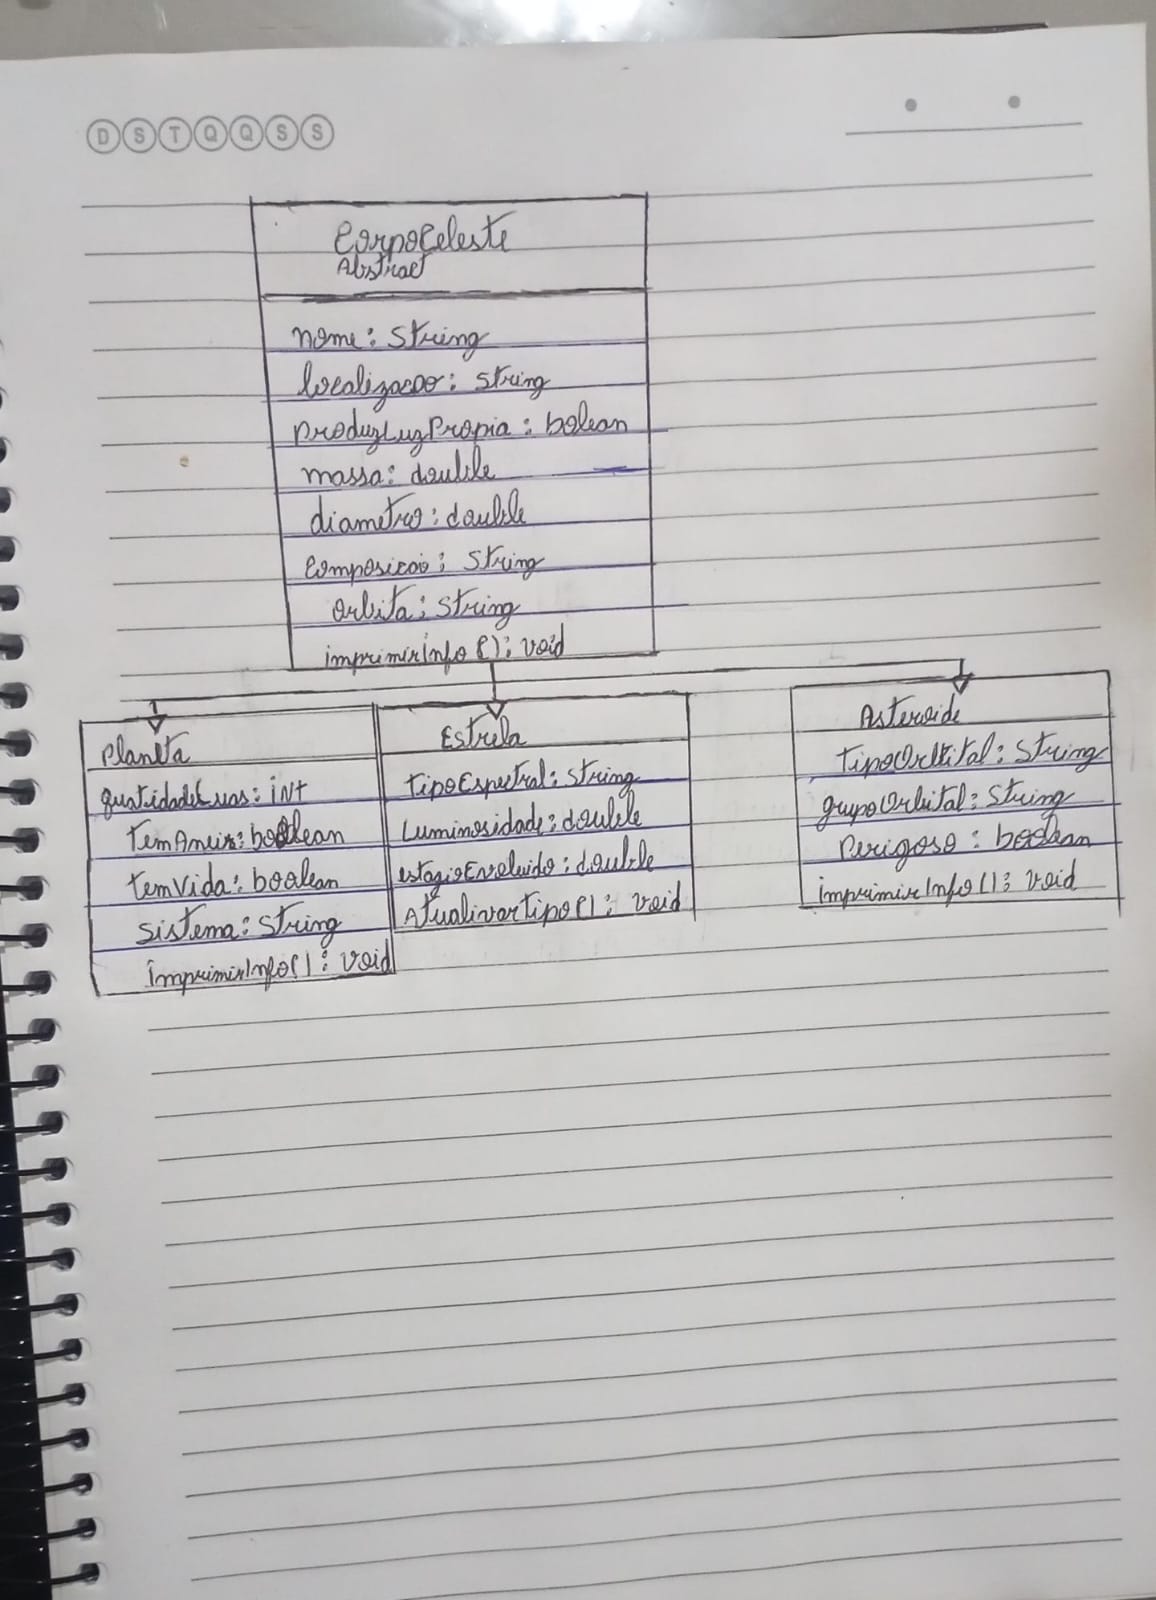 D S T Q Q S S
CorpoCeleste
Abstract
nome: String
localizacao: String
produzLuzPropia: bolean
massa: double
diametro: double
composicao: String
orbita: String
imprimirInfo(): void
Planeta
quatidadeLuas: int
TemAneis: boolean
temVida: boolean
sistema: String
imprimirInfo(): void
Estrela
tipoEspectral: String
Luminosidade: double
estagioEvoluido: double
Atualivartipo(): void
Asteroide
tipoOrbital: String
grupoOrbital: String
Perigoso: boolean
imprimirInfo(): void